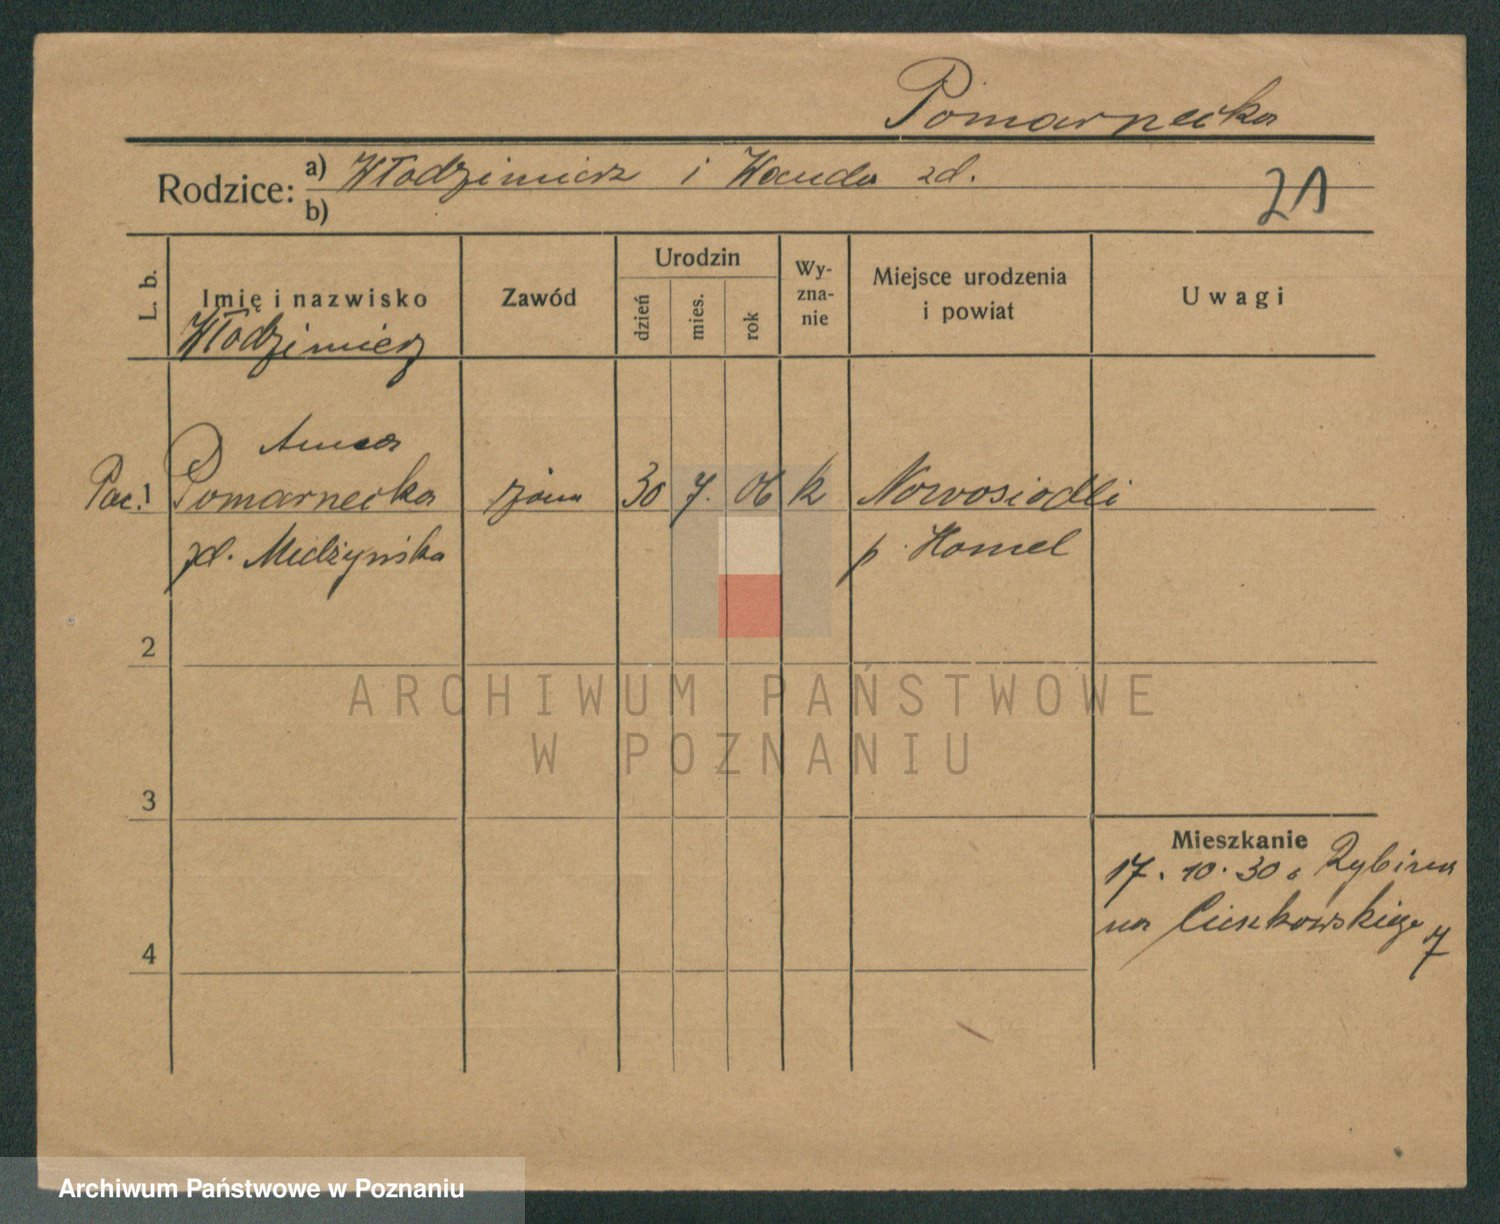 Pomarnecka
Rodzice: a) Włodzimierz i Wanda zd.
b)
21
L. b.
Imię i nazwisko
Włodzimierz
Zawód
Urodzin
dzień
mies.
rok
Wy-
zna-
nie
Miejsce urodzenia
i powiat
Uwagi
Anna
1 Pomarnecka żona 30 7. 06 k Nowosiodli
zd. Midżyńska p. Homel
2
3
4
Mieszkanie
17. 10. 30 z
na Cieszkowskiego 7
ARCHIWUM PAŃSTWOWE
W POZNANIU
Archiwum Państwowe w Poznaniu